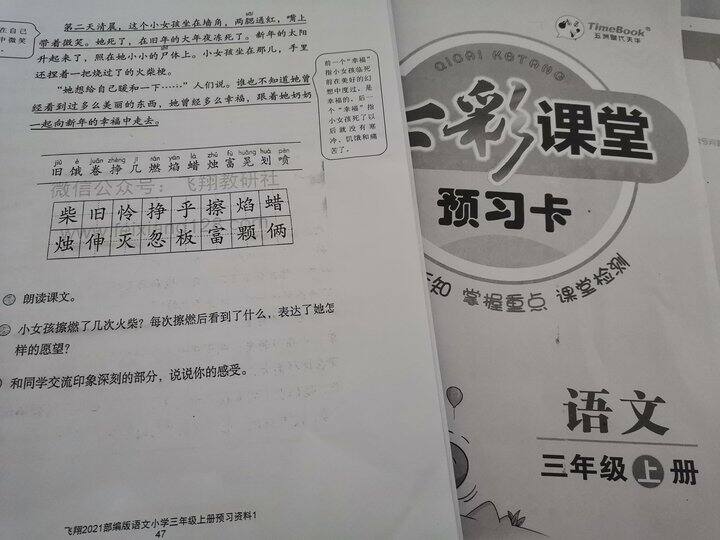 第二天清晨，这个小女孩坐在墙角，两腮通红，嘴上
带着微笑。她死了，在旧年的大年夜冻死了。新年的太阳
升起来了，照在她小小的尸体上。小女孩坐在那儿，手里
还捏着一把烧过了的火柴梗。
“她想给自己暖和一下……”人们说。谁也不知道她曾
经看到过多么美丽的东西，她曾经多么幸福，跟着她奶奶
一起向新年的幸福中走去。
在自己
中微笑
前一个“幸福”
指小女孩临死
前在美好的幻
想中度过，是
幸福的。后一
个“幸福”指
小女孩死了以
后就没有寒
冷、饥饿和痛
苦了。
jiù è juǎn zhēng jǐ rán yàn là zhú fù huǎng huá pēn
旧 饿 卷 挣 几 燃 焰 蜡 烛 富 晃 划 喷
微信公众号：飞翔教研社
柴 旧 怜 挣 乎 擦 焰 蜡
烛 伸 灭 忽 板 富 颗 俩
朗读课文。
小女孩擦燃了几次火柴？每次擦燃后看到了什么，表达了她怎
样的愿望？
和同学交流印象深刻的部分，说说你的感受。
飞翔2021部编版语文小学三年级上册预习资料1
47
TimeBook
五洲时代天华
QICAI KETANG
七彩课堂
预习卡
知 掌握重点 课堂检测
语文
三年级上册